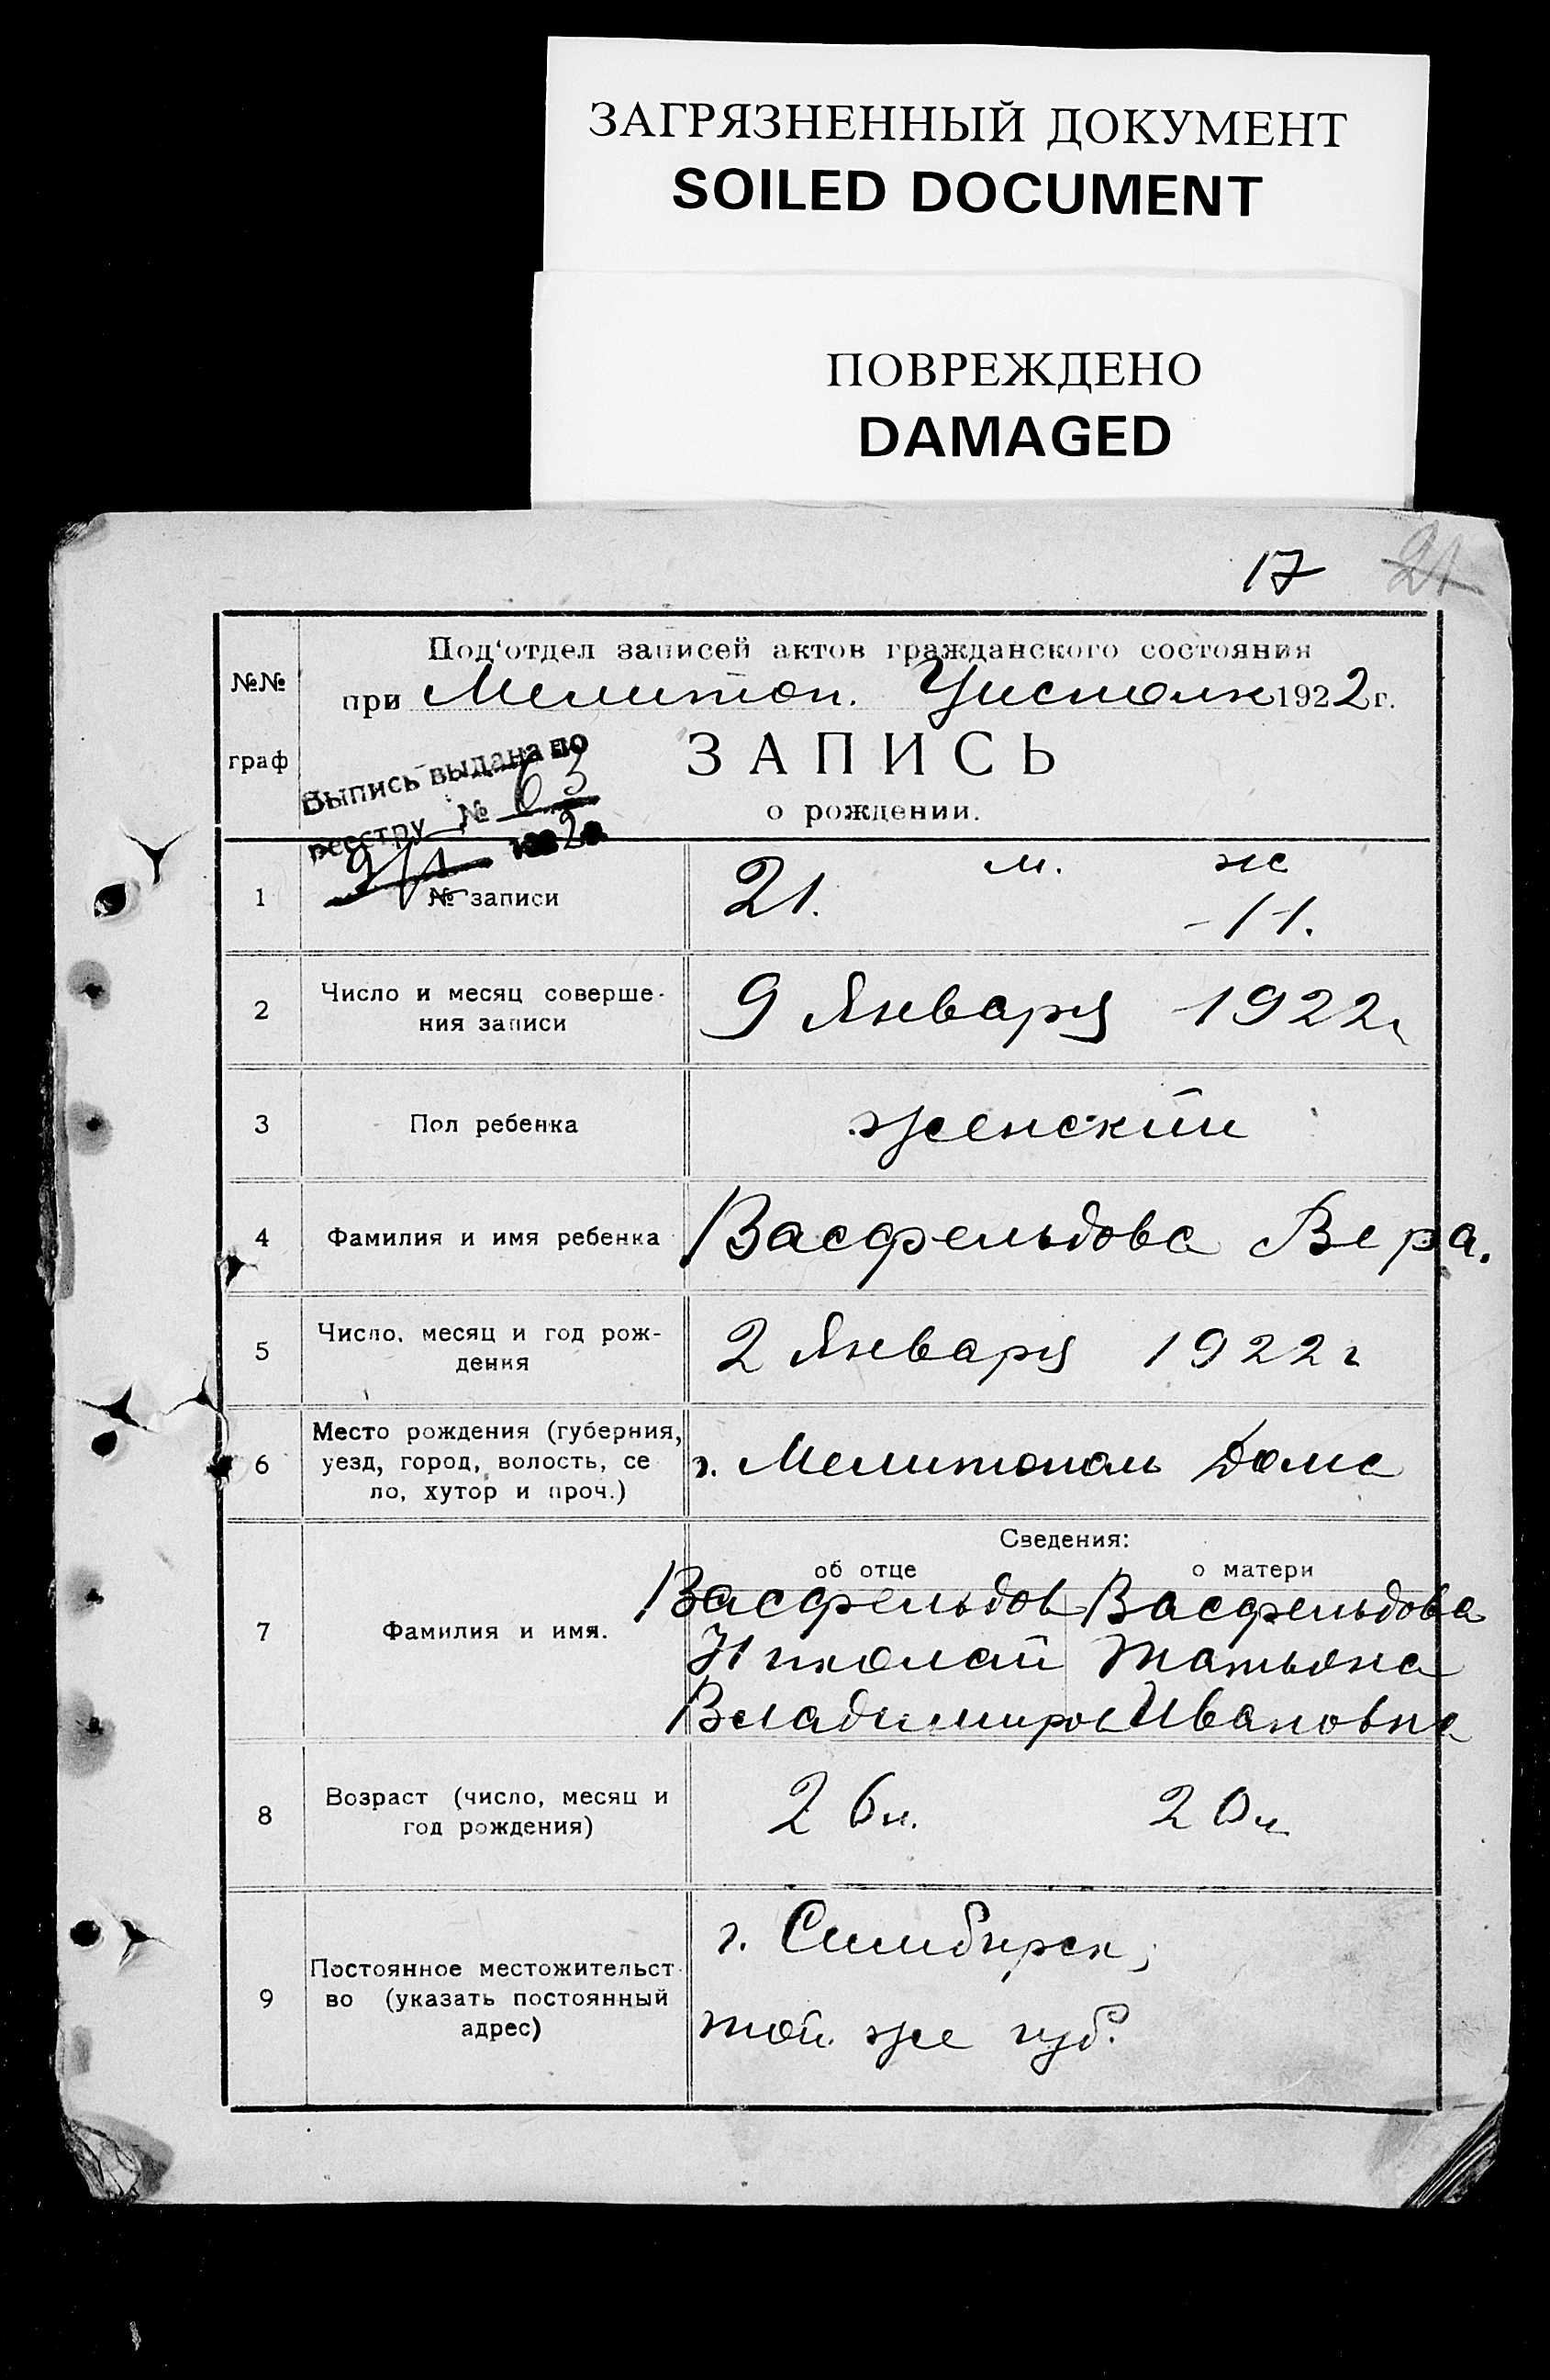 ЗАГРЯЗНЕННЫЙ ДОКУМЕНТ
SOILED DOCUMENT
ПОВРЕЖДЕНО
DAMAGED
17 21
№№ граф
Под‘отдел записей актов гражданского состояния
при Мелитоп. 1922 г.
ЗАПИСЬ
о рождении.
Выпись выдана по
реестру № 63
9/1
1 № записи 21. м. ж
-11.
2 Число и месяц соверше-
ния записи 9 Января 1922 г
3 Пол ребенка женский
4 Фамилия и имя ребенка Васфельдова Вера.
5 Число, месяц и год рож-
дения 2 Января 1922 г
6 Место рождения (губерния,
уезд, город, волость, се
ло, хутор и проч.) г. Мелитополь Дома
Сведения:
об отце о матери
7 Фамилия и имя. Васфельдов Васфельдова
Николай Татьяна
Владимиров Ивановна
8 Возраст (число, месяц и
год рождения) 26 л. 20 л
9 Постоянное местожительст
во (указать постоянный
адрес) г. Симбирск,
той же губ.